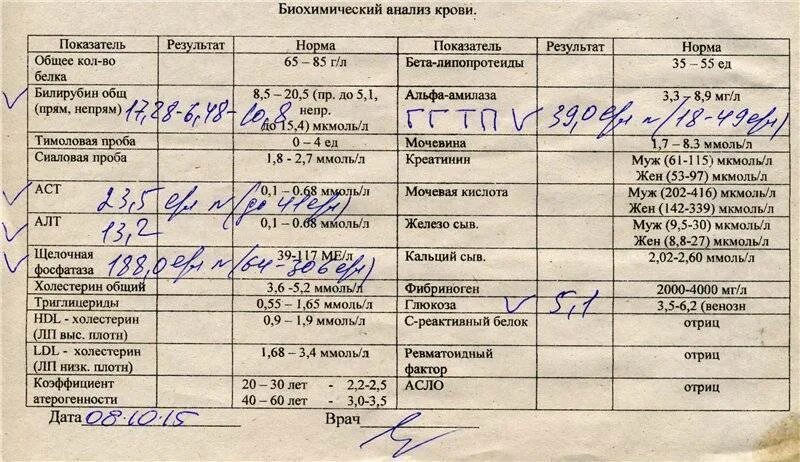 Биохимический анализ крови.
Показатель Результат Норма Показатель Результат Норма
Общее кол-во белка 65 – 85 г/л Бета-липопротеиды 35 – 55 ед
Билирубин общ (прям, непрям) 17,28-6,48-10,8 8,5 – 20,5 (пр. до 5,1, непр. до 15,4) мкмоль/л Альфа-амилаза 3,3 – 8,9 мг/л
ГГТП 39,0 ед/л N (18-49 ед/л)
Тимоловая проба 0 – 4 ед Мочевина 1,7 – 8.3 ммоль/л
Сиаловая проба 1,8 - 2,7 ммоль/л Креатинин Муж (61-115) мкмоль/л
Жен (53-97) мкмоль/л
АСТ 23,5 ед/л N (до 41 ед/л) 0,1 – 0.68 ммоль/л Мочевая кислота Муж (202-416) мкмоль/л
Жен (142-339) мкмоль/л
АЛТ 13,2 0,1 – 0.68 ммоль/л Железо сыв. Муж (9,5-30) мкмоль/л
Жен (8,8-27) мкмоль/л
Щелочная фосфатаза 188,0 ед/л N (64-306 ед/л) 39-117 МЕ/л Кальций сыв. 2,02-2,60 ммоль/л
Холестерин общий 3,6 -5,2 ммоль/л Фибриноген 2000-4000 мг/л
Триглицериды 0,55 – 1,65 ммоль/л Глюкоза 5,1 3,5-6,2 (венозн
HDL - холестерин (ЛП выс. плотн) 0,9 – 1,9 ммоль/л С-реактивный белок отриц
LDL – холестерин (ЛП низк. плотн) 1,68 – 3,4 ммоль/л Ревматоидный фактор отриц
Коэффициент атерогенности 20 – 30 лет - 2,2-2,5 АСЛО отриц
40 – 60 лет - 3,0-3,5
Дата 08.10.15 Врач